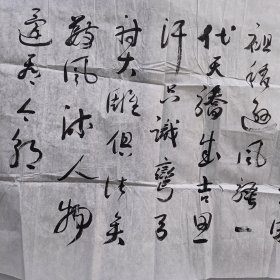 祖稍遜風騷一
代天驕成吉思
汗只識彎弓
射大雕俱往矣
數風流人物
還看今朝